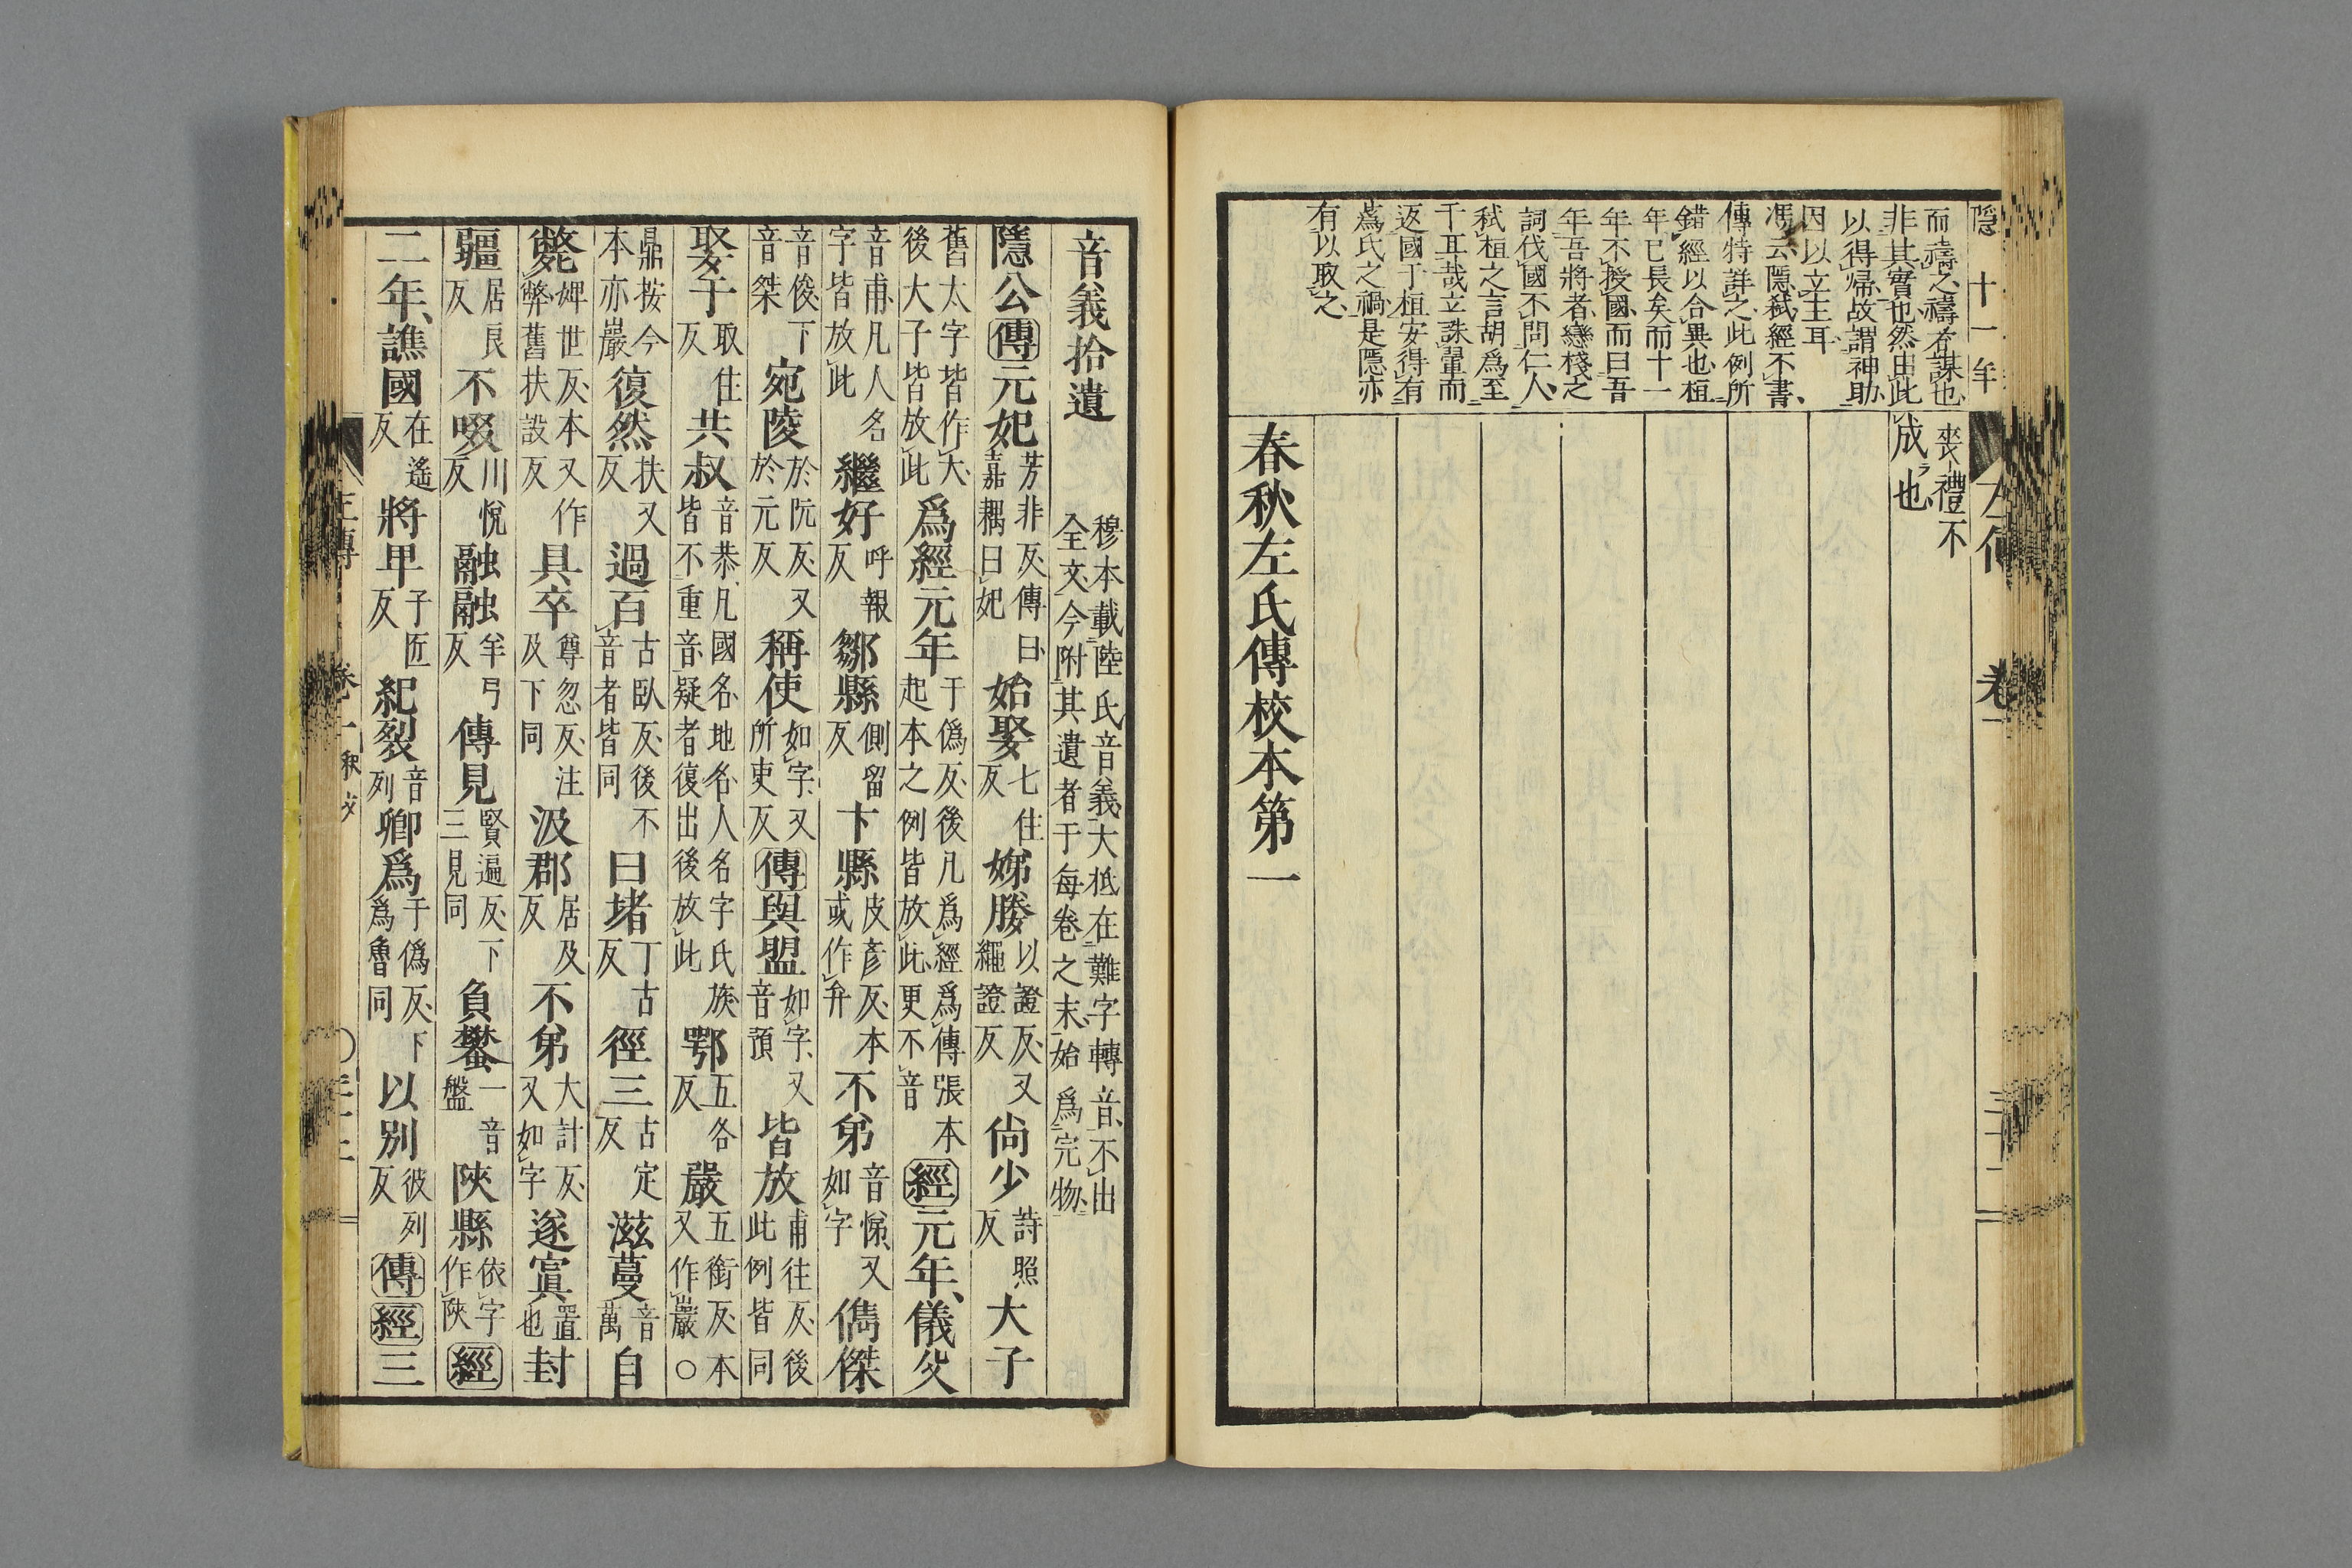 隱 十一年
而禱之禱者謀也
非其實也然由此
以得歸故謂神助
因以立主耳
馮云隱弒經不書
傳特詳之此例所
錯經以合異也桓
年已長矣而十一
年不授國而曰吾
年吾將者戀棧之
詞伐國不問仁人
弒桓之言胡爲至
于耳哉立誅翬而
返國于桓安得有
蔿氏之禍是隱亦
有以取之
喪禮不
成也
春秋左氏傳校本第一
音義拾遺 穆本載陸氏音義大抵在難字轉音不出
全文今附其遺者于每卷之末始爲完物
隱公傳元妃芳非反傳曰嘉耦曰妃 始娶七住反 娣媵以證反又繩證反 尙少詩照反 大子
舊太字皆作大後大子皆放此 爲經元年于僞反後凡爲經爲傳張本起本之例皆放此更不音 經元年儀父
音甫凡人名字皆放此 繼好呼報反 鄒縣側留反 卞縣皮彥反本或作弁 不弟音悌又如字 儁傑
音俊下音桀 宛陵於阮反又於元反 稱使如字又所吏反 傳與盟如字又音預 皆放甫往反後此例皆同
娶于取住反 共叔音恭凡國名地名人名字氏族皆不重音疑者復出後放此 鄂五各反 巖五銜反本又作巖○
鼎按今本亦巖 復然扶又反 過百古臥反後不音者皆同 曰堵丁古反 徑三古定反 滋蔓音萬 自
斃婢世反本又作弊舊扶設反 具卒尊忽反注及下同 汲郡居及反 不弟大計反又如字 遂寘置也 封
疆居良反 不啜川悅反 融融羊弓反 傳見賢遍反下三見同 負蠜一音盤 陝縣依字作陝 經
二年譙國在遙反 將甲子匠反 紀裂音列 卿爲于僞反下爲魯同 以別彼列反 傳經三